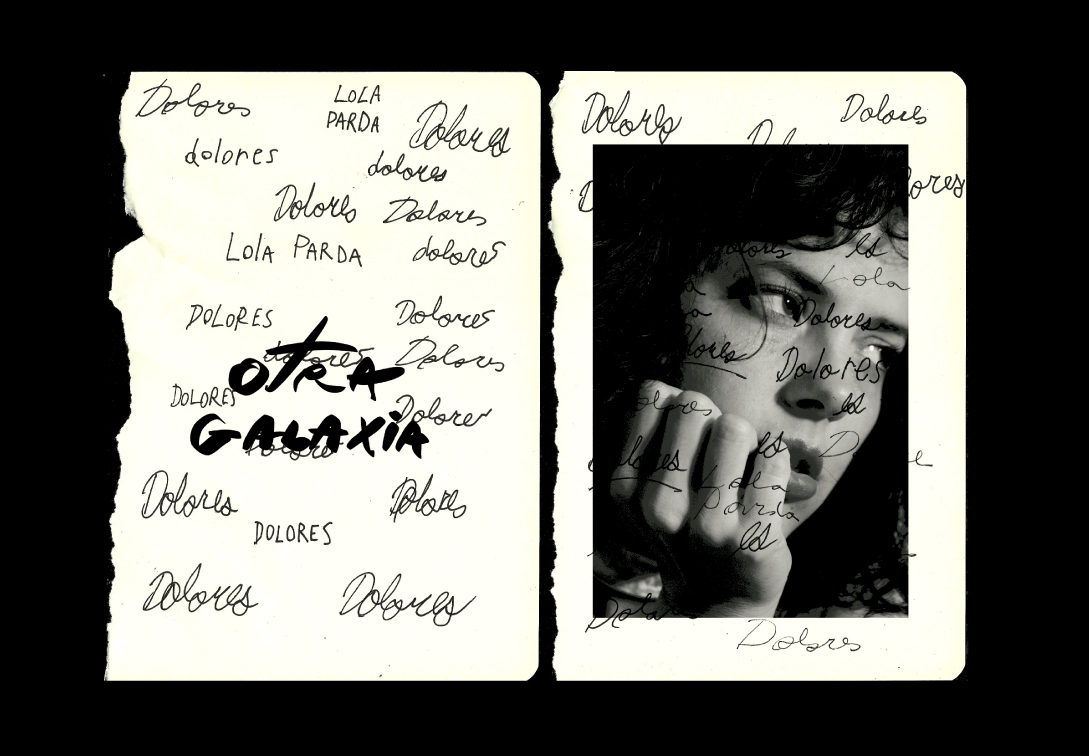 Dolores
LOLA
PARDA
Dolores
dolores
dolores
Dolores
Dolores
LOLA PARDA
dolores
DOLORES
Dolores
dolores
Dolores
OTRA
DOLORES
Dolores
GALAXIA
Dolores
Dolores
Dolores
DOLORES
Dolores
Dolores
Dolores
Dolores
Dolores
Lola
Dolores
Dolores
Lola
Parda
Dolores